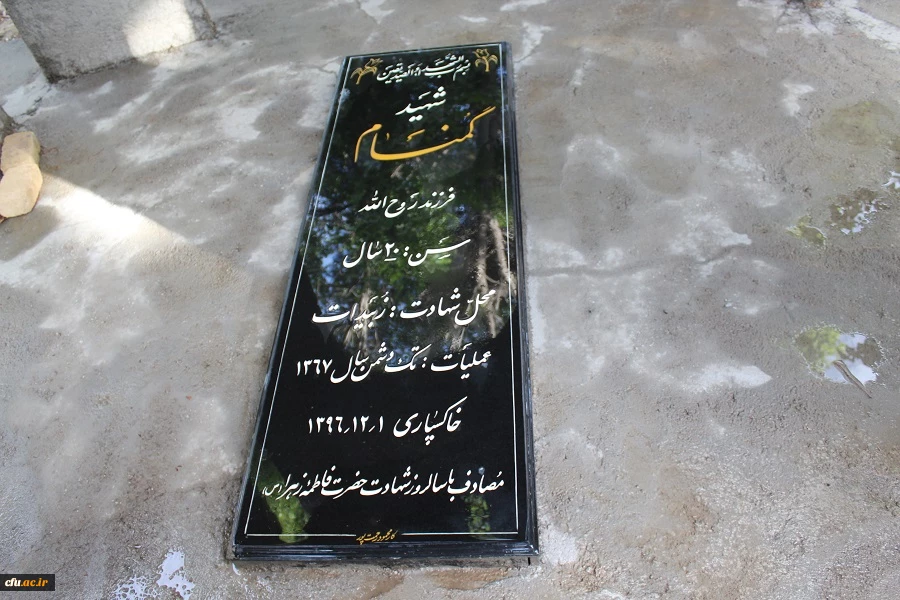 بسم رب الشهداء و الصدیقین
شهید
گمنام
فرزند روح الله
سن: ۲۰ سال
محل شهادت: زبیدات
عملیات: تک دشمن سال ۱۳۶۷
خاکسپاری ۱۳۹۶،۱۲،۱
مصادف با سالروز شهادت حضرت فاطمه زهرا (س)
cfu.ac.ir